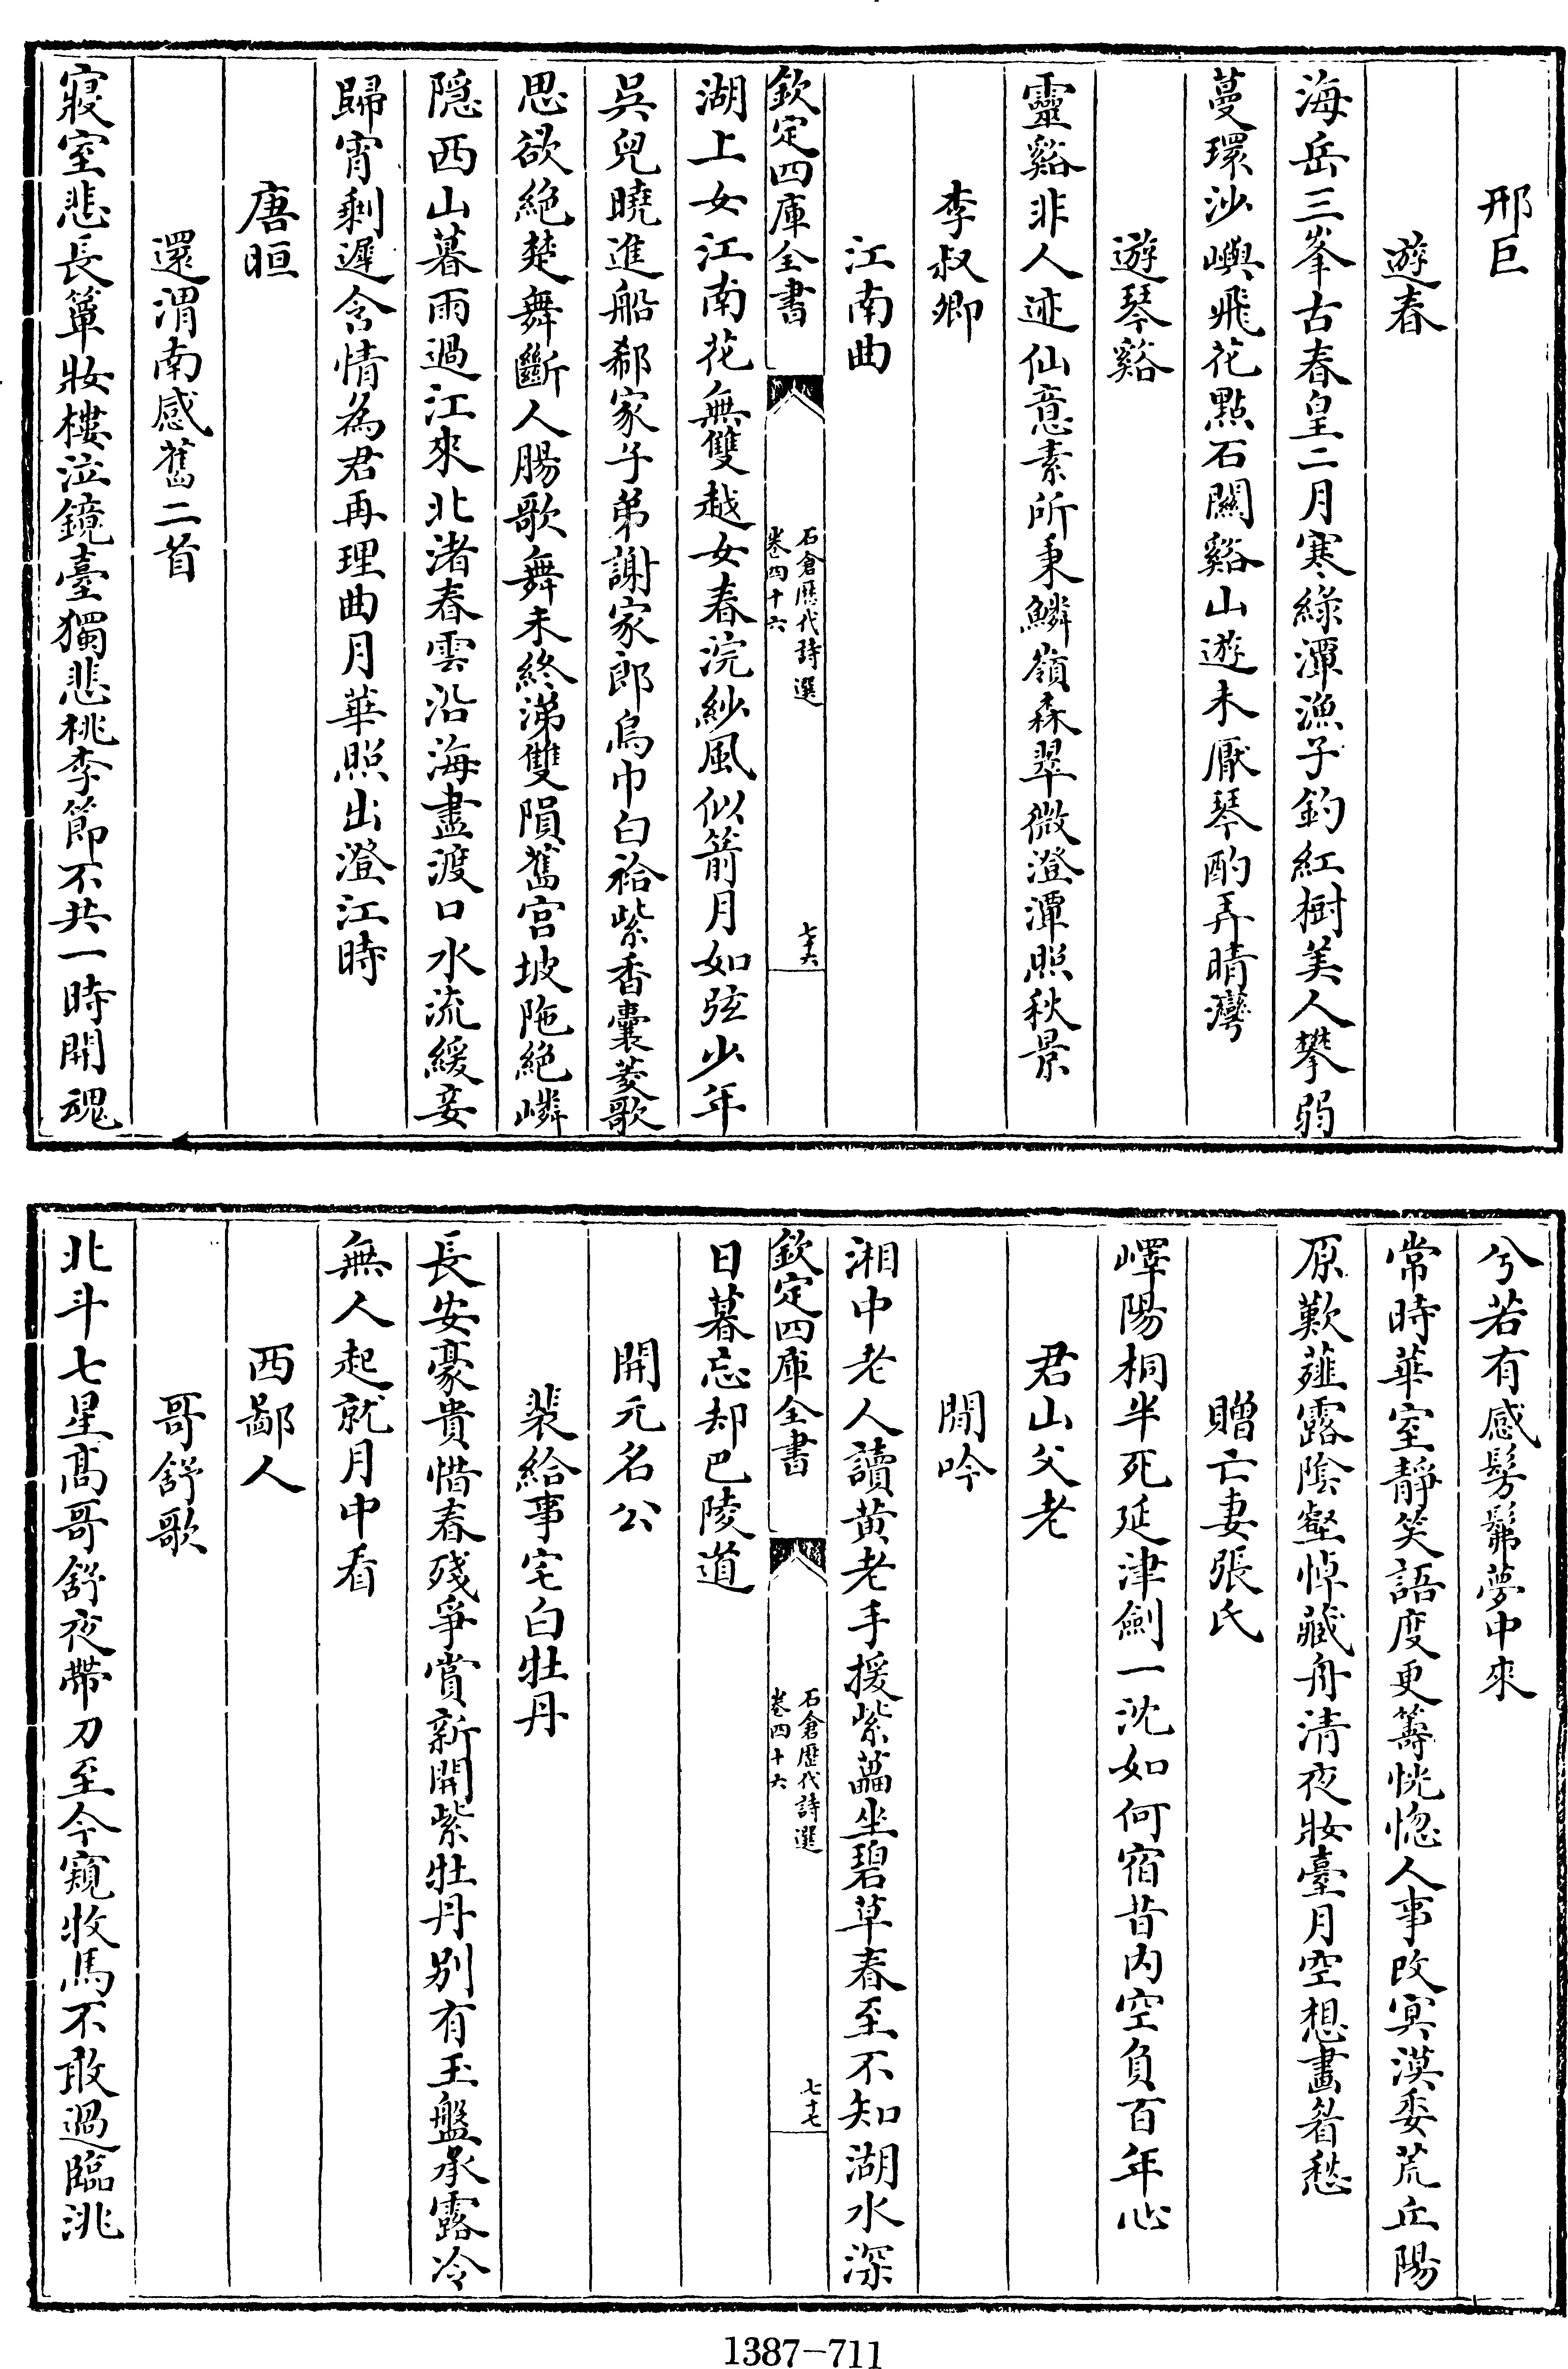 邢巨
遊春
海岳三峯古春皇二月寒綠潭漁子釣紅樹美人攀弱
蔓環沙嶼飛花點石關谿山遊未厭琴酌弄晴灣
遊琴谿
靈谿非人迹仙意素所秉鱗嶺森翠微澄潭照秋景
李叔卿
江南曲
欽定四庫全書
石倉歷代詩選
卷四十六
七十六
湖上女江南花無雙越女春浣紗風似箭月如弦少年
吳兒曉進船郗家子弟謝家郎烏巾白袷紫香囊菱歌
思欲絶楚舞斷人腸歌舞未終涕雙隕舊宮坡陁絶嶙
隐西山暮雨過江來北渚春雲沿海盡渡口水流緩妾
歸宵剩遲含情為君再理曲月華照出澄江時
唐晅
還渭南感舊二首
寢室悲長簟妝樓泣鏡臺獨悲桃李節不共一時開魂
兮若有感髣髴夢中來
常時華室靜笑語度更籌恍惚人事改冥漠委荒丘陽
原歎薤露陰壑悼藏舟清夜妝臺月空想畫眉愁
贈亡妻張氏
嶧陽桐半死延津劍一沈如何宿昔内空負百年心
君山父老
閒吟
湘中老人讀黄老手援紫藟坐碧草春至不知湖水深
欽定四庫全書
石倉歷代詩選
卷四十六
七十七
日暮忘却巴陵道
開元名公
裴給事宅白牡丹
長安豪貴惜春殘爭賞新開紫牡丹别有玉盤承露冷
無人起就月中看
西鄙人
哥舒歌
北斗七星髙哥舒夜帶刀至今窺牧馬不敢過臨洮
1387-711